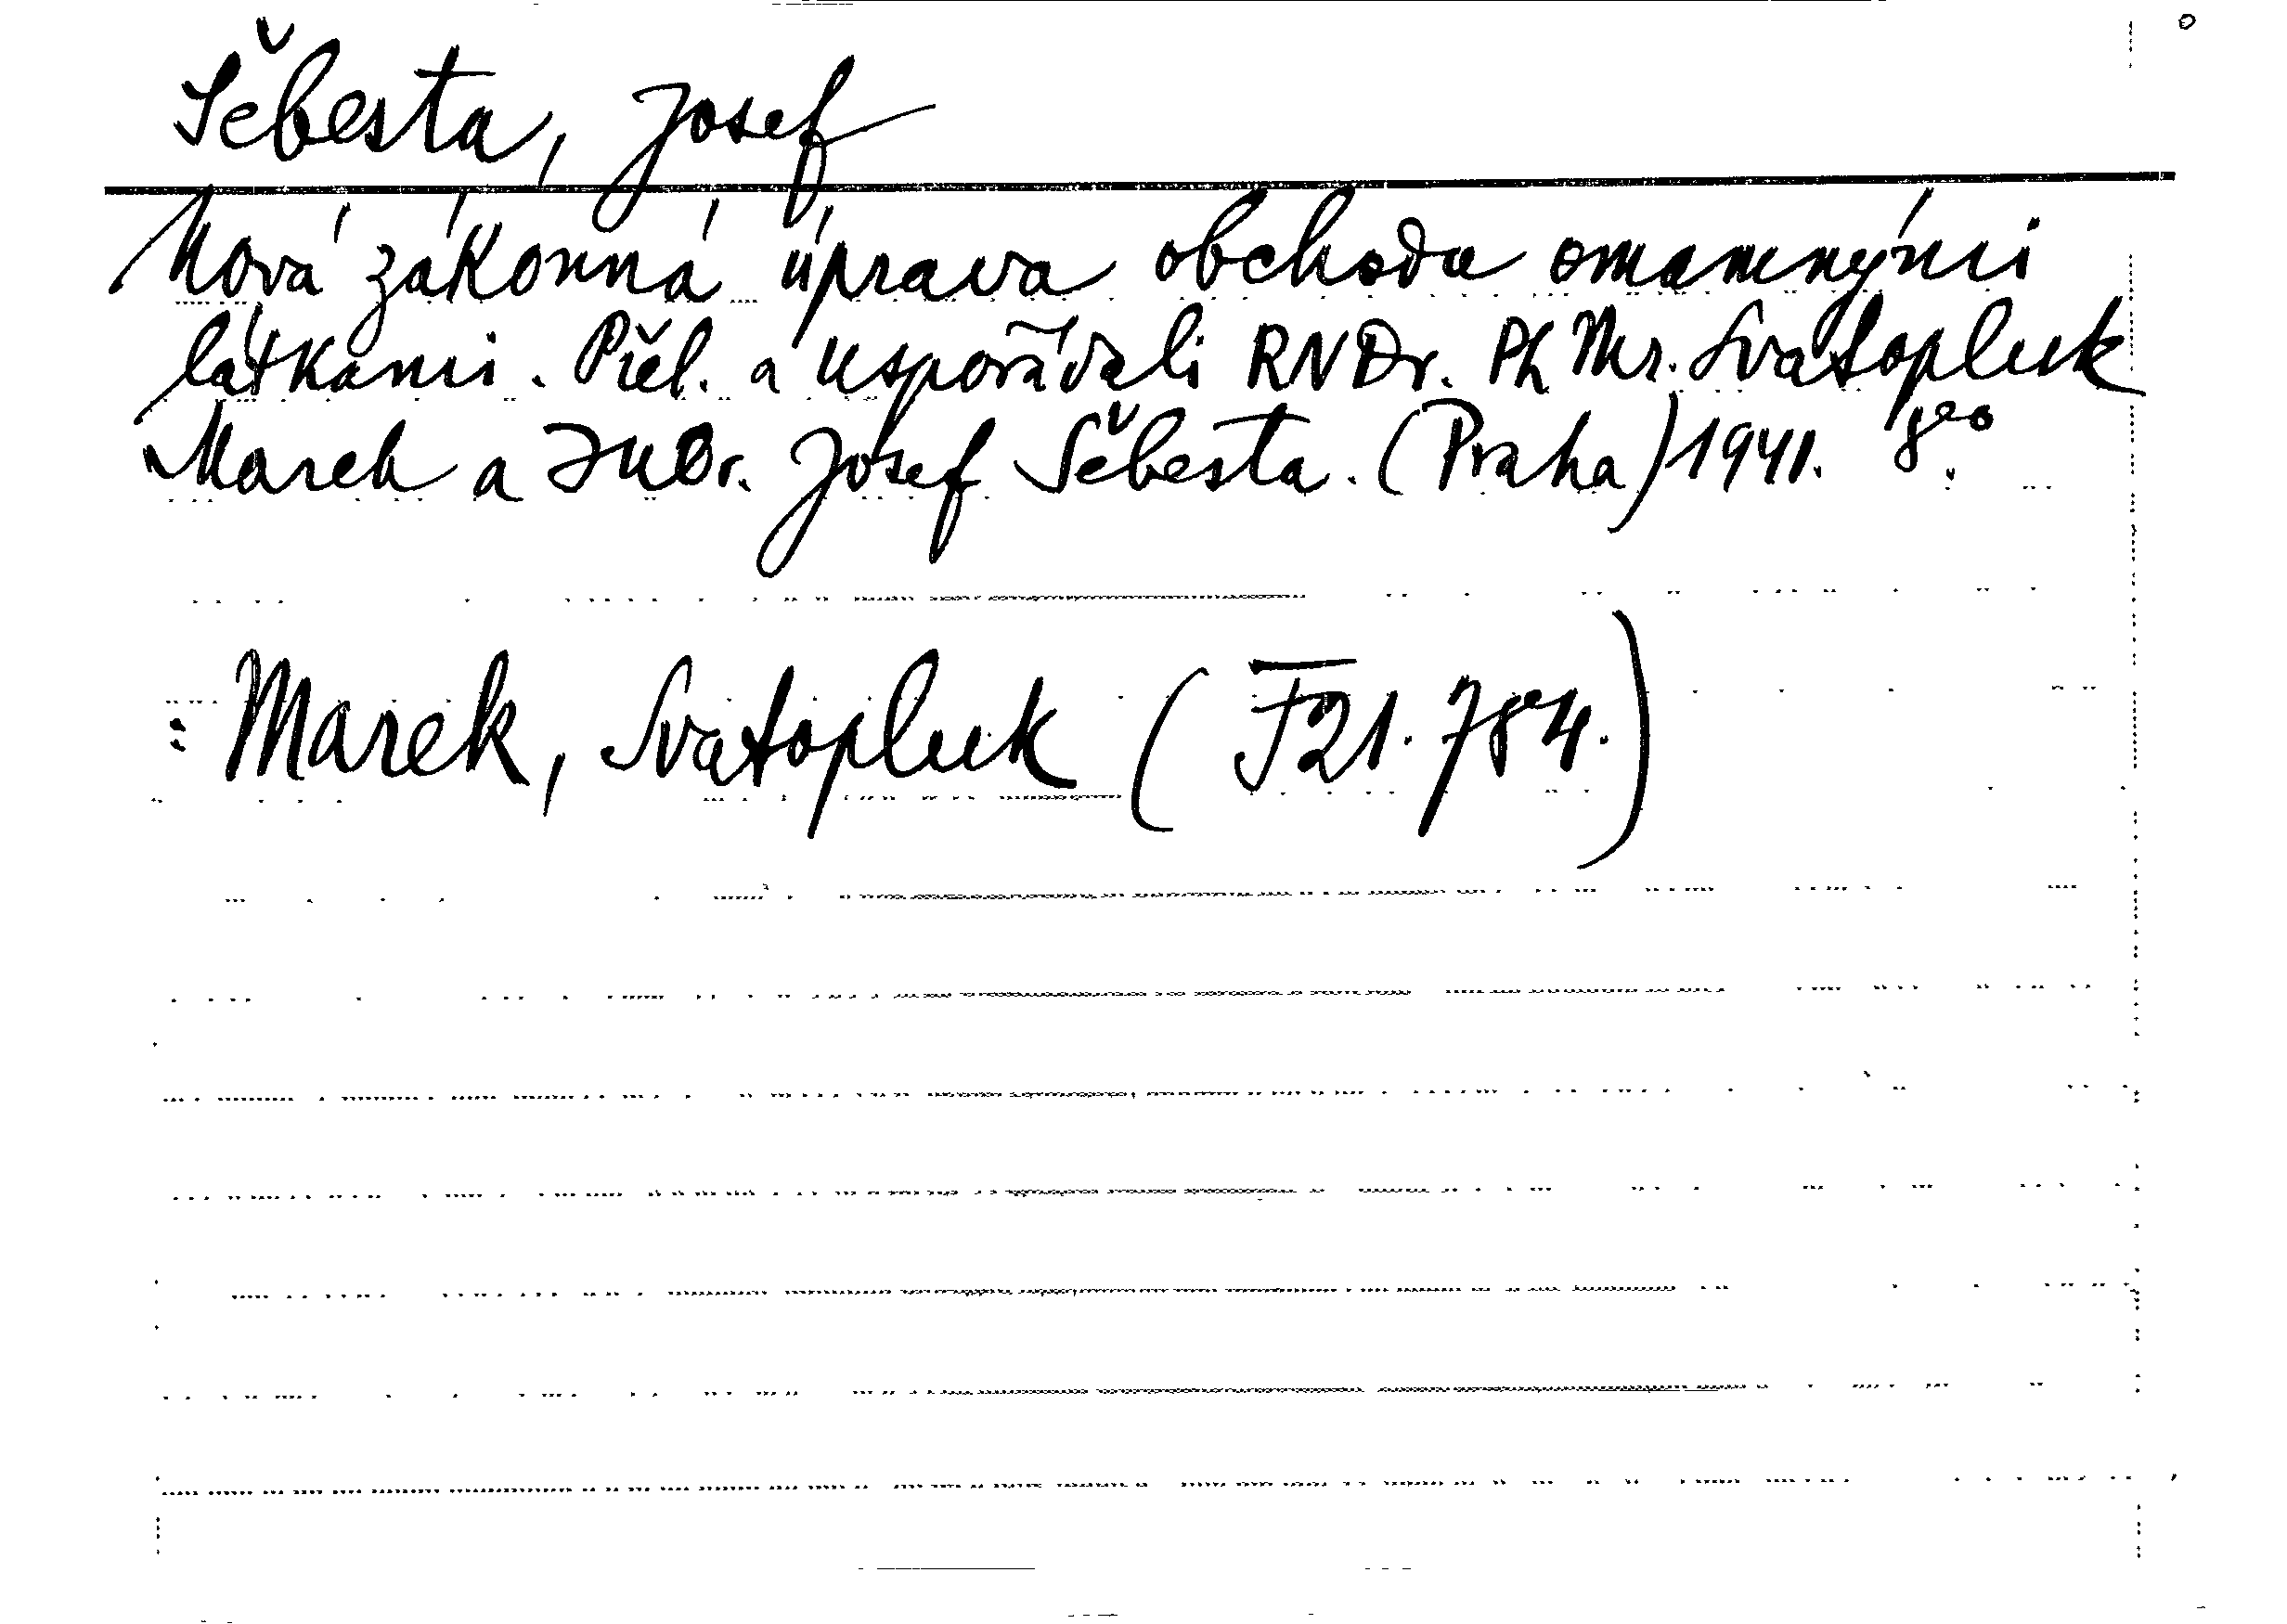 Šebesta, Josef
Nová zákonná úprava obchodu omamnými
látkami. Přel. a uspořádali RNDr. PhMr. Svatopluk
Marek a JUDr. Josef Šebesta. (Praha) 1941. 8°.
: Marek, Svatopluk (F21.784.)